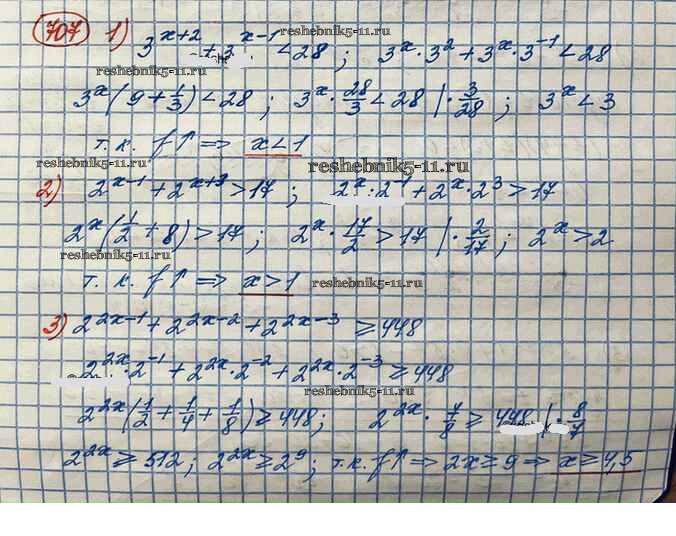 707 1) 3^(x+2) + 3^(x-1) < 28 ; 3^x · 3^2 + 3^x · 3^(-1) < 28
reshebnik5-11.ru
3^x (9 + 1/3) < 28 ; 3^x · 28/3 < 28 | · 3/28 ; 3^x < 3
reshebnik5-11.ru
т. к. f↑ ⇒ x < 1
reshebnik5-11.ru reshebnik5-11.ru
2) 2^(x-1) + 2^(x+3) > 17 ; 2^x · 2^(-1) + 2^x · 2^3 > 17
2^x (1/2 + 8) > 17 ; 2^x · 17/2 > 17 | · 2/17 ; 2^x > 2
reshebnik5-11.ru
т. к. f↑ ⇒ x > 1 reshebnik5-11.ru
3) 2^(2x-1) + 2^(2x-2) + 2^(2x-3) ≥ 448
2^(2x) · 2^(-1) + 2^(2x) · 2^(-2) + 2^(2x) · 2^(-3) ≥ 448
reshebnik5-11.ru
2^(2x) (1/2 + 1/4 + 1/8) ≥ 448 ; 2^(2x) · 7/8 ≥ 448 | · 8/7
2^(2x) ≥ 512 ; 2^(2x) ≥ 2^9 ; т. к. f↑ ⇒ 2x ≥ 9 ⇒ x ≥ 4,5